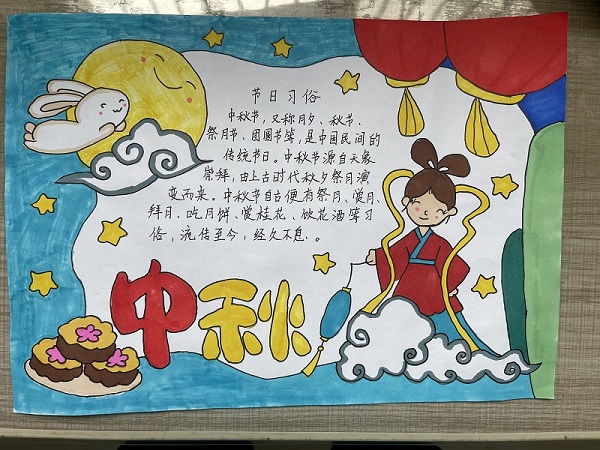 节日习俗
中秋节，又称月夕、秋节、
祭月节、团圆节等，是中国民间的
传统节日。中秋节源自天象
崇拜，由上古时代秋夕祭月演
变而来。中秋节自古便有祭月、赏月、
拜月、吃月饼、赏桂花、饮花酒等习
俗，流传至今，经久不息。
中秋